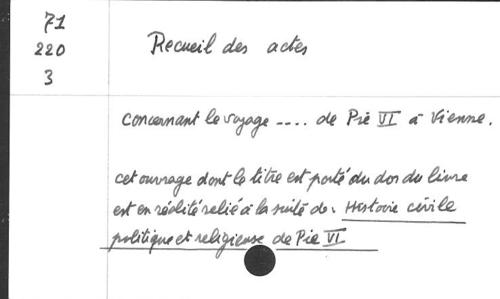 71
220
3
Recueil des actes
concernant le voyage .... de Pie VI à Vienne.
cet ouvrage dont le titre est porté du dos du livre
est en réalité relié à la suite de. Histoire civile
politique et religieuse de Pie VI